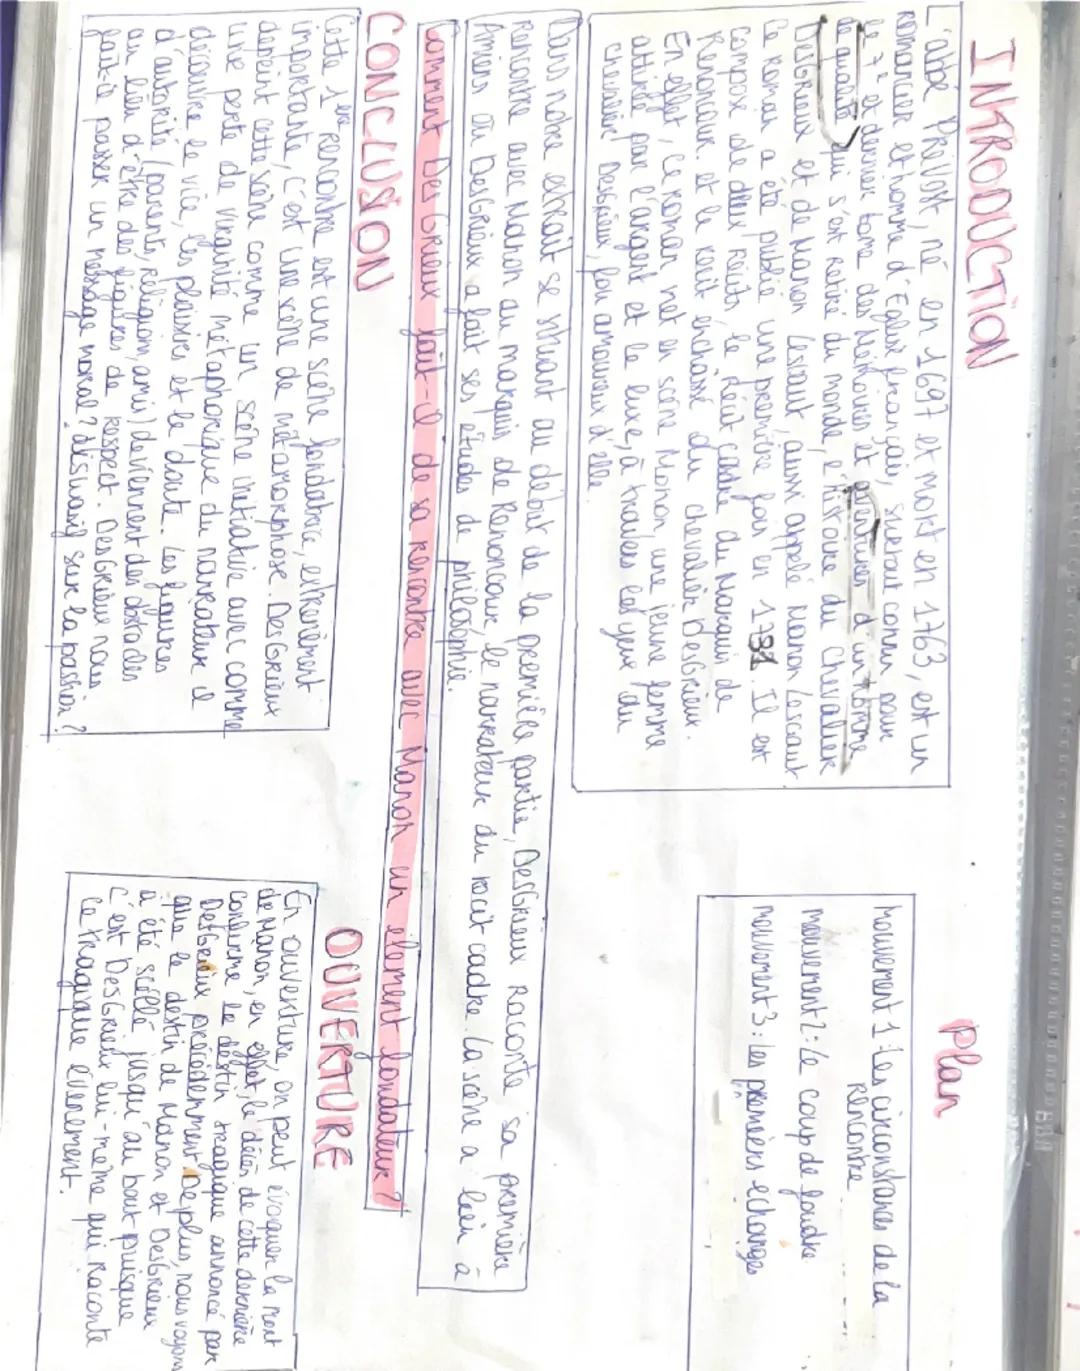 INTRODUCTION
L'abbé Prévost, né en 1697 et mort en 1763, est un
romancier et homme d'Eglise français, surtout connu pour
le 7e et dernier tome des Mémoires et aventures d'un homme
de qualité qui s'est retiré du monde, l'histoire du Chevalier
DesGrieux et de Manon Lescaut, aussi appelé Manon Lescaut
Ce roman a été publié une première fois en 1731. Il est
composé de deux récits, le récit cadre du Marquis de
Renoncour et le récit enchassé du chevalier DesGrieux.
En effet, ce roman met en scène Manon une jeune femme
attirée par l'argent et le luxe, à travers les yeux du
chevalier DesGrieux, fou amoureux d'elle.
Plan
mouvement 1: Les circonstances de la
Rencontre
mouvement 2: Le coup de foudre
mouvement 3: Les premiers echanges
Dans notre extrait se situant au début de la première partie, DesGrieux raconte sa première
rencontre avec Manon au marquis de Renoncour, le narrateur du récit cadre. La scène a lieu à
Amiens où DesGrieux a fait ses études de philosophie.
Comment Des Grieux fait-il de sa rencontre avec Manon un element fondateur?
CONCLUSION
Cette 1ère rencontre est une scène fondatrice, extrêmement
importante, c'est une scène de métamorphose. DesGrieux
dépeint cette scène comme un scène initiative avec comme
une perte de virginité métaphorique du narrateur il
découvre le vice, les plaisirs et le doute. Les figures
d'autorité (parents, religion, amis) deviennent des obstacles
au lieu d'être des figures de respect. DesGrieux nous
fait-il passer un message moral? dissuasif sur la passion?
OUVERTURE
En ouverture, on peut évoquer la mort
de Manon, en effet, le décès de cette dernière
confirme le destin tragique annoncé par
DesGrieux précédemment. De plus, nous voyons
que le destin de Manon et DesGrieux
a été scellé jusqu'au bout puisque
c'est DesGrieux lui-même qui raconte
ce tragique évènement.